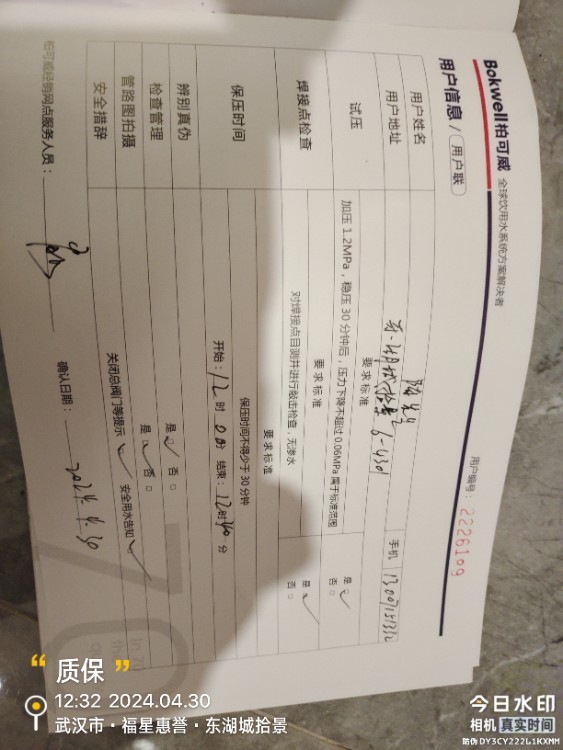 Bokwell柏可威 全球饮用水系统方案解决者
用户编号： 2226109
用户信息 / 用户联
用户姓名
用户地址 6-4301 手机
试压 要求标准
加压 1.2MPa，稳压 30 分钟后，压力下降不超过 0.06MPa 属于标准范围 是 ✓ 否 □
焊接点检查 要求标准
对焊接点目测并进行敲击检查，无渗水 是 ✓ 否 □
保压时间 要求标准
保压时间不得少于 30 分钟
开始：12 时 0 分 结束：12 时 30 分
辨别真伪 是 ✓ 否 □
检查管理 是 ✓ 否 □
管路图拍摄
安全措辞 关闭总阀门等提示 ✓ 安全用水告知 ✓
柏可威经销网点服务人员： 确认日期： 2024.4.30
“ 质保 ”
12:32 2024.04.30
武汉市·福星惠誉·东湖城拾景
今日水印
相机 真实时间
防伪 DY3CY222B1KXMM